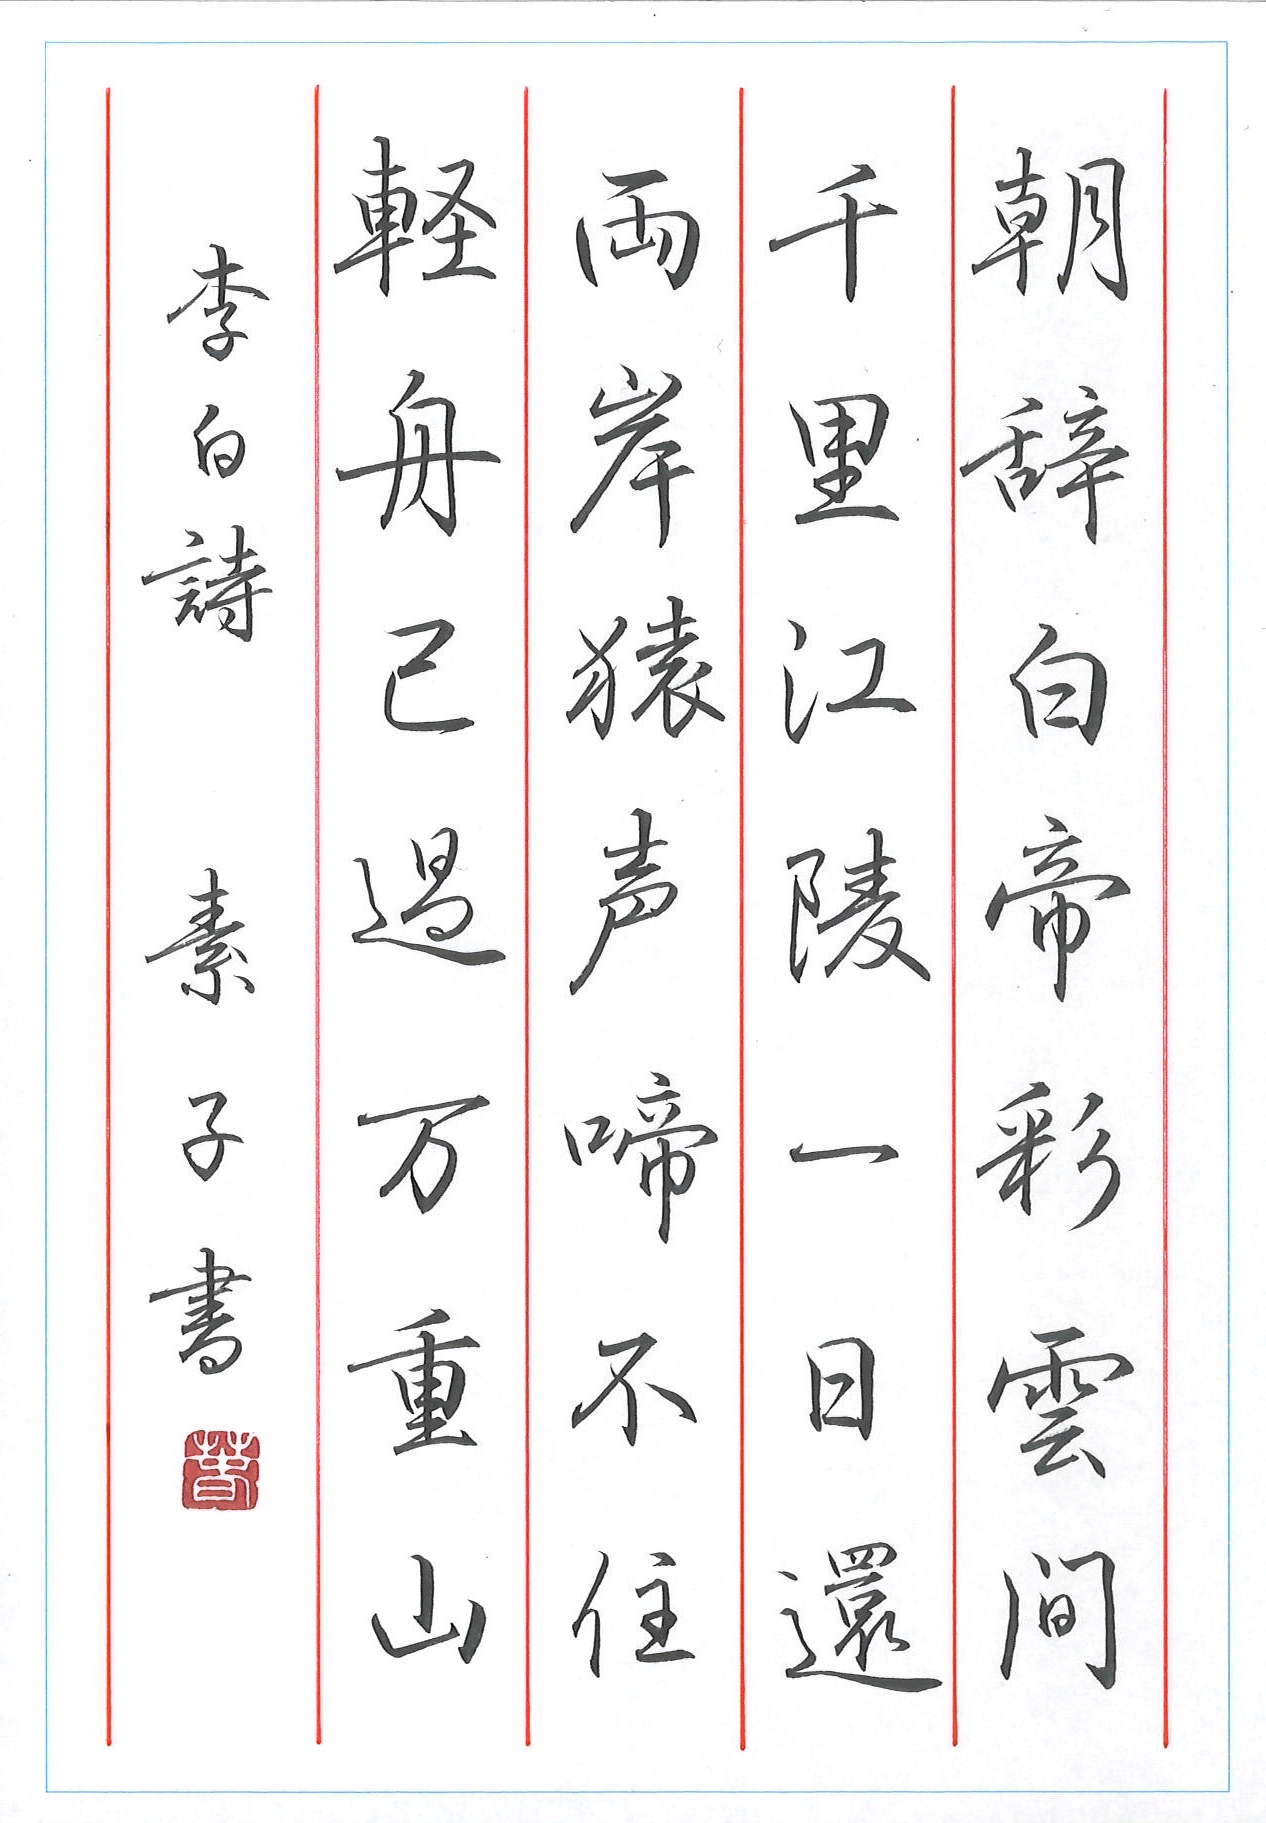 朝辞白帝彩雲間
千里江陵一日還
両岸猿声啼不住
軽舟已過万重山
李白詩 素子書